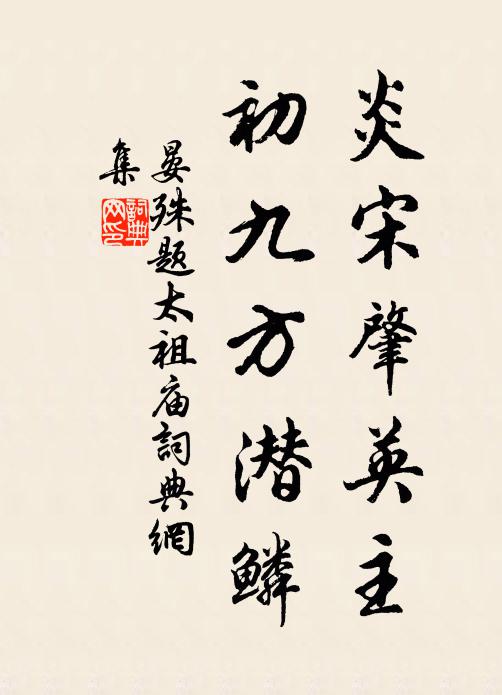 炎宋肇英主
初九方潜鳞
晏殊题太祖庙詞典網
集
詞典網印